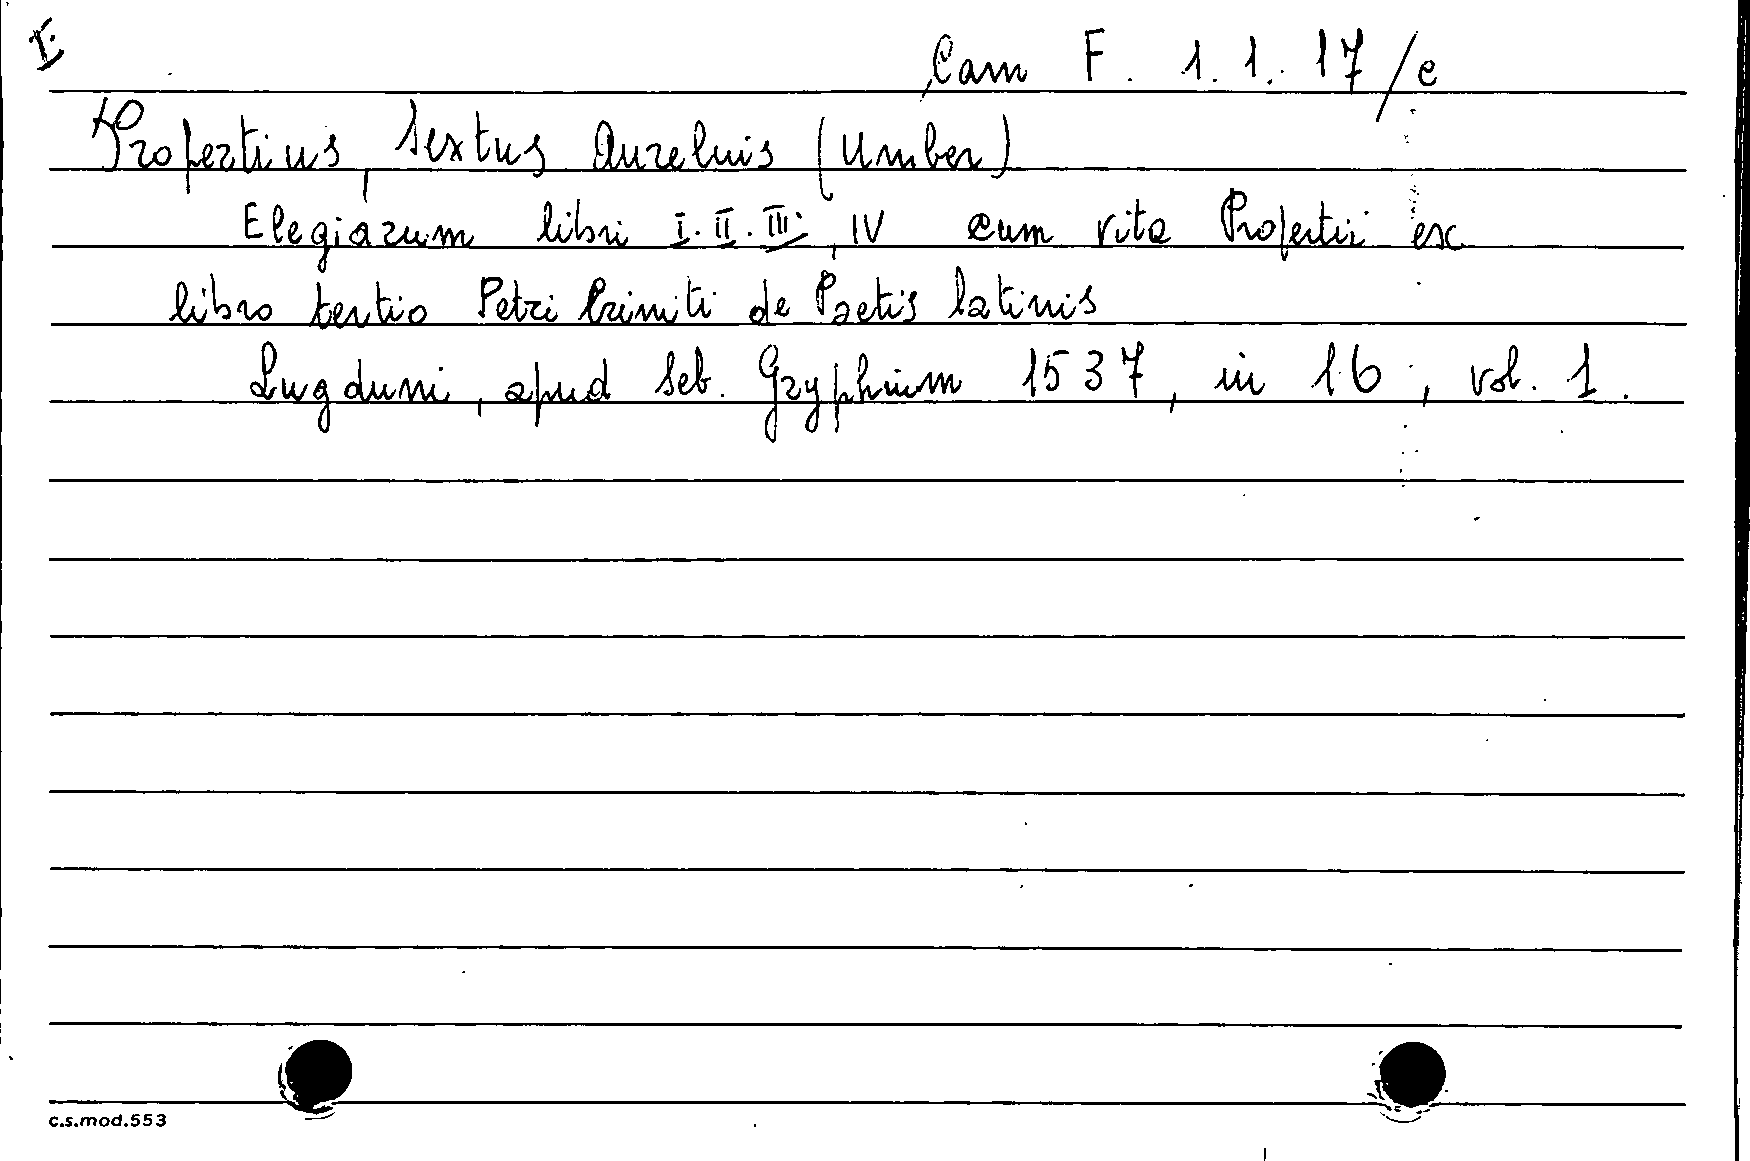 Cam F. 1. 1. 17/e
Propertius, Sextus Aurelius (Umber)
Elegiarum libri I. II. III, IV cum vita Propertii ex
libro tertio Petri Criniti de Poetis latinis
Lugduni, apud Seb. Gryphium 1537, in 16, vol. 1.
c.s.mod.553